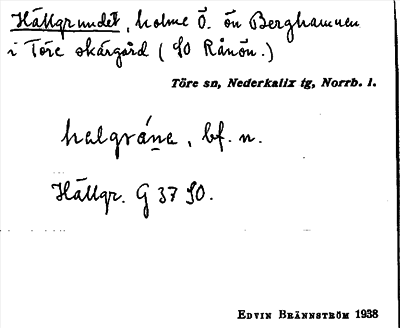 Hällgrundet, holme Ö. ön Berghamnen
i Töre skärgård (SO Rånön.)
Töre sn, Nederkalix tg, Norrb. l.
hälgráne, bf. n.
Hällgr. G 37 SO.
Edvin Brännström 1938